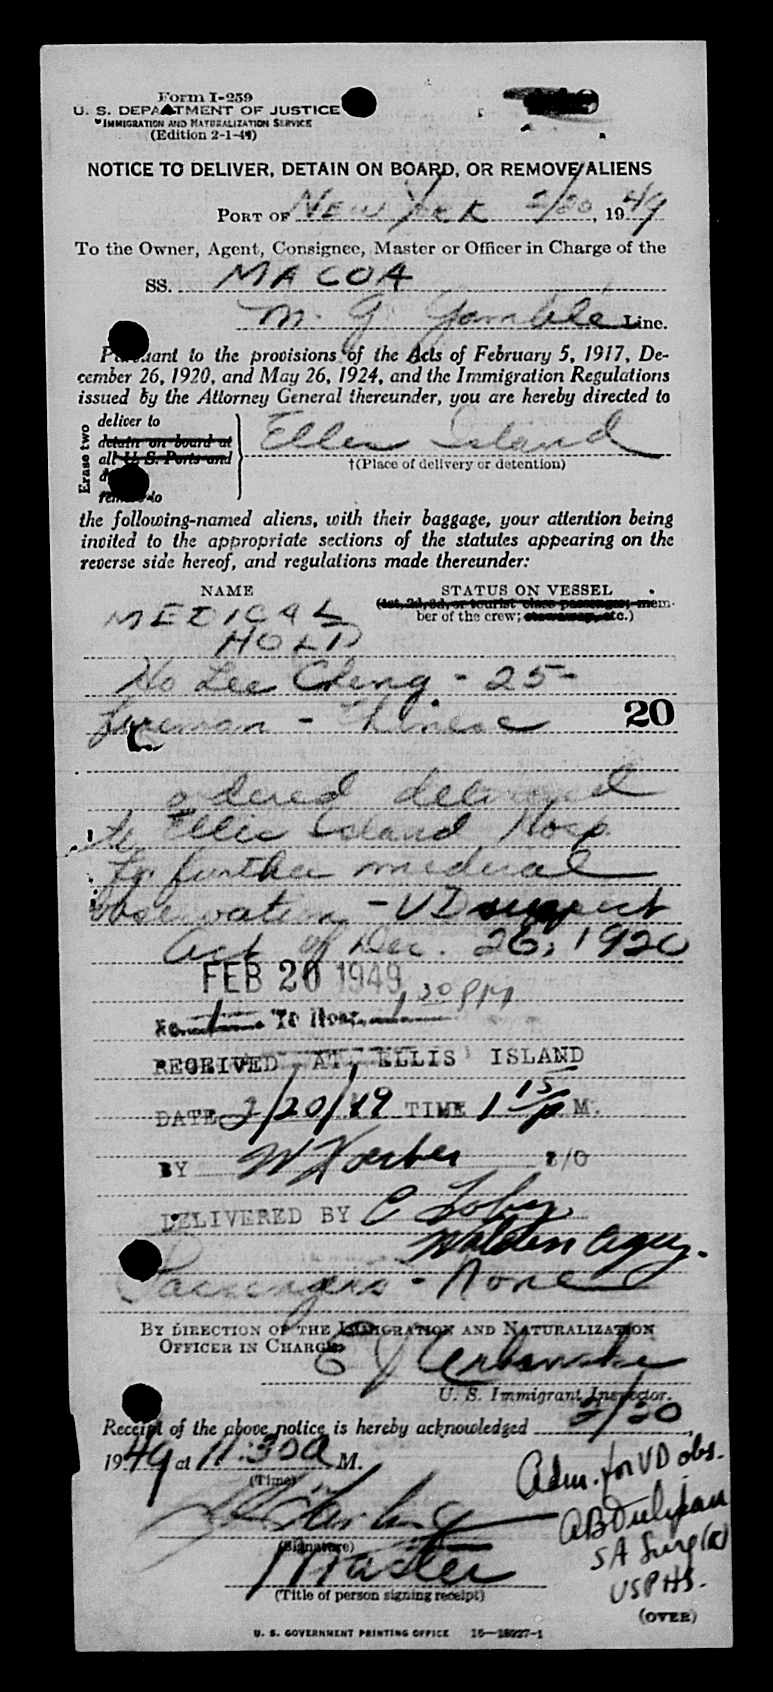 Form I-259
U. S. DEPARTMENT OF JUSTICE
IMMIGRATION AND NATURALIZATION SERVICE
(Edition 2-1-44)
NOTICE TO DELIVER, DETAIN ON BOARD, OR REMOVE ALIENS
PORT OF New York 2/20, 1949
To the Owner, Agent, Consignee, Master or Officer in Charge of the
SS. MACOA
M. J. Gamble Line.
Pursuant to the provisions of the Acts of February 5, 1917, De-
cember 26, 1920, and May 26, 1924, and the Immigration Regulations
issued by the Attorney General thereunder, you are hereby directed to
Erase two
deliver to
detain on board at
all U. S. Ports and
remove to
Ellis Island
†(Place of delivery or detention)
the following-named aliens, with their baggage, your attention being
invited to the appropriate sections of the statutes appearing on the
reverse side hereof, and regulations made thereunder:
NAME STATUS ON VESSEL
(1st, 2d, 3d, or tourist class passenger; mem-
ber of the crew; stowaway, etc.)
MEDICAL
HOLD
Ho Lee Cheng - 25-
fireman - Chinese 20
ordered delivered
to Ellis Island Hosp
for further medical
observation - VD suspect
Act of Dec. 26, 1920
FEB 20 1949 1:30 PM
To Hosp.
RECEIVED AT ELLIS ISLAND
DATE 2/20/49 TIME 1 15/P M.
BY W Koerber
DELIVERED BY C
Passengers - None
BY DIRECTION OF THE IMMIGRATION AND NATURALIZATION
OFFICER IN CHARGE
U. S. Immigrant Inspector.
Receipt of the above notice is hereby acknowledged 2/20,
1949 at 11:30a M.
(Time)
(Signature)
Master
(Title of person signing receipt)
Adm. for VD obs.
SA Surg (R)
USPHS.
(OVER)
U. S. GOVERNMENT PRINTING OFFICE 16—18227-1